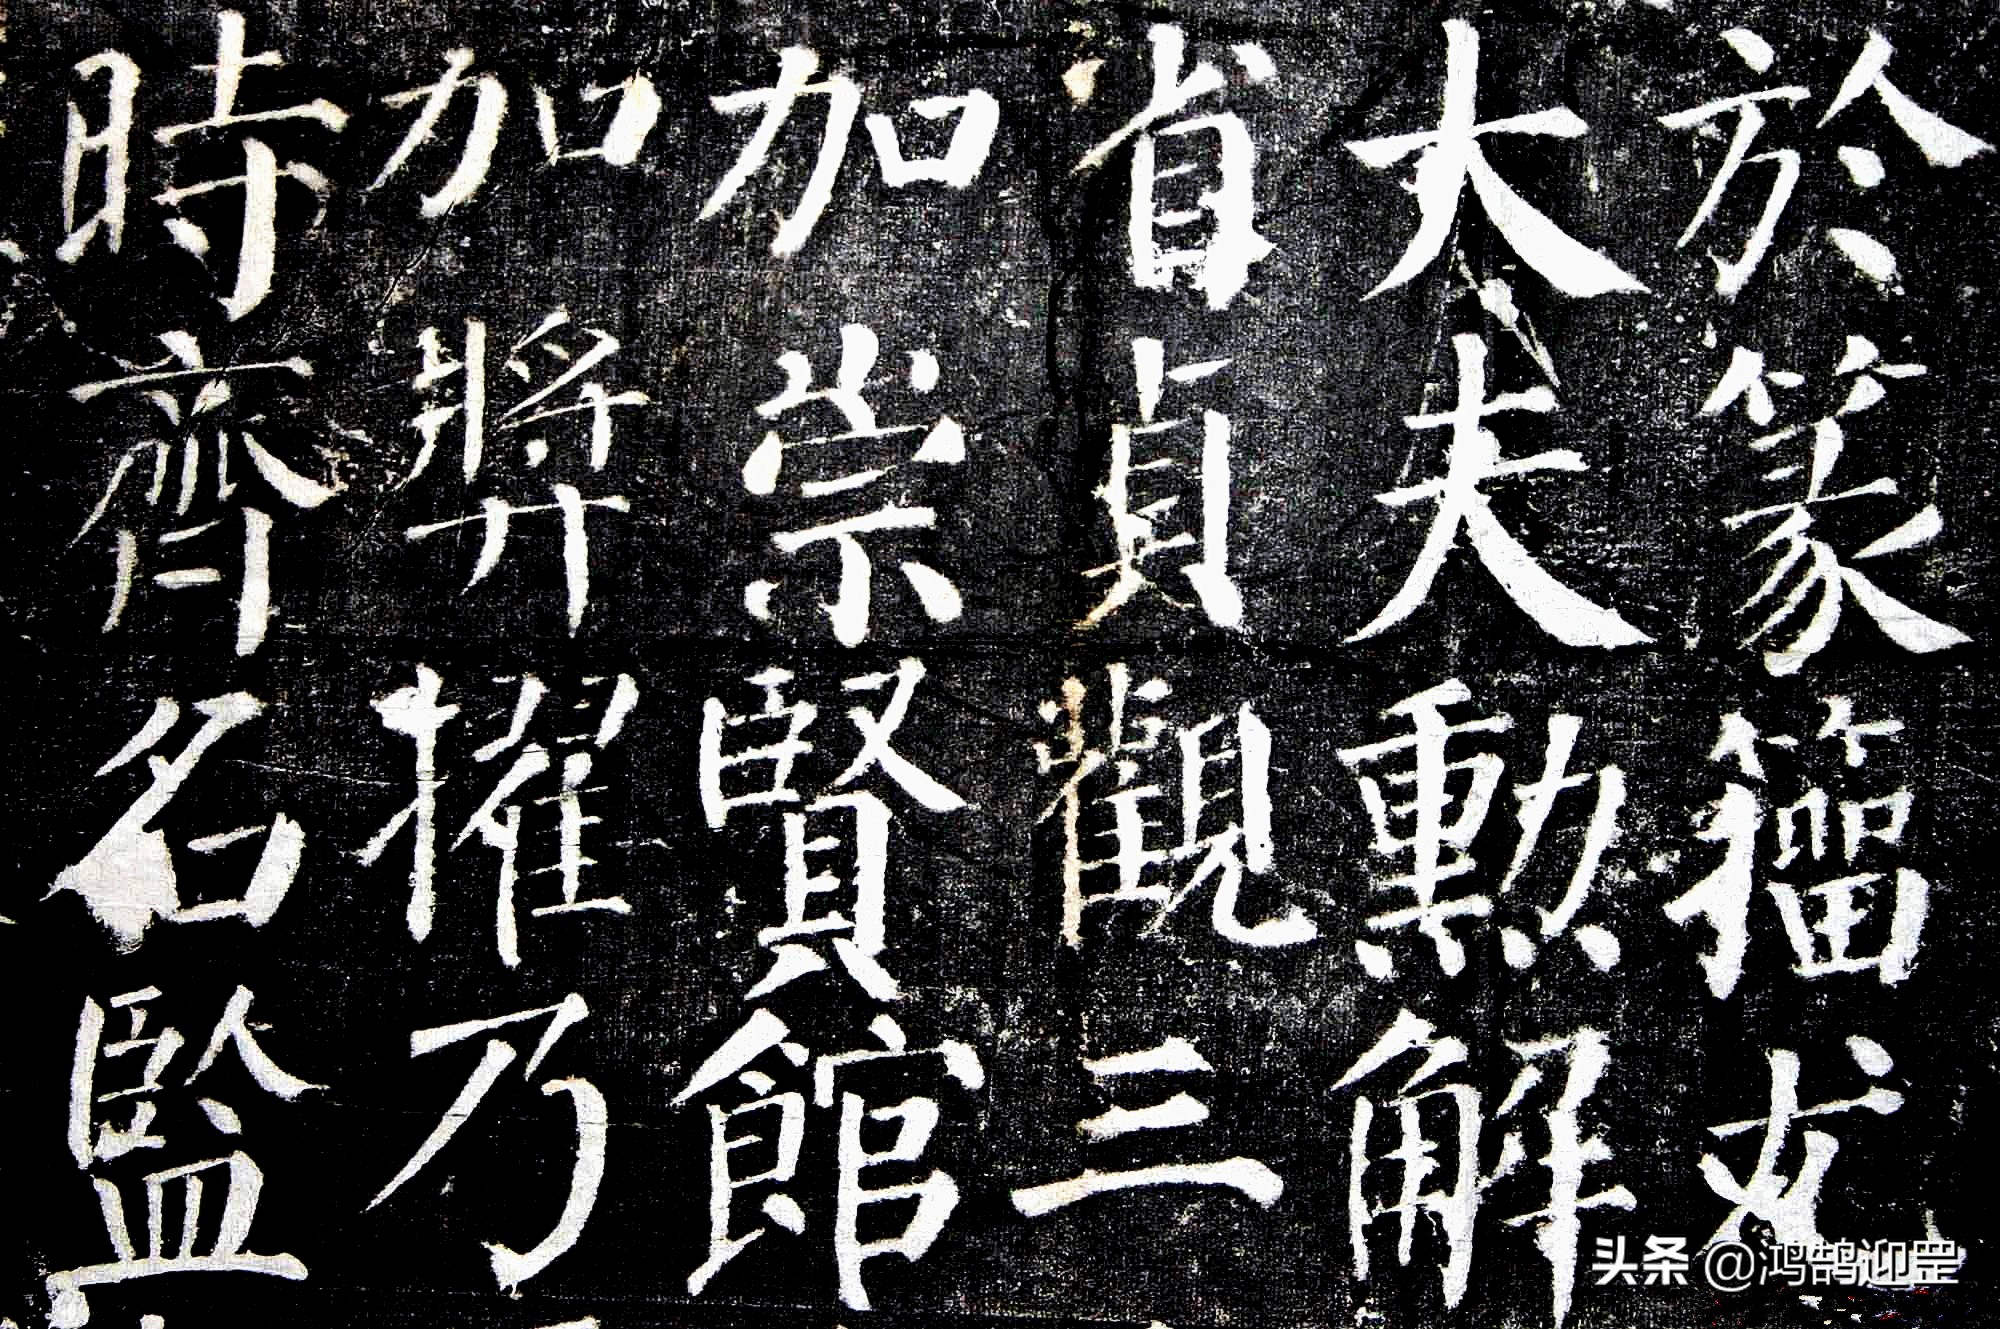 於篆籀尤
大夫勳解
省貞觀三
加崇賢館
加奬擢乃
時齊名監
头条 @鸿鹄迎罡